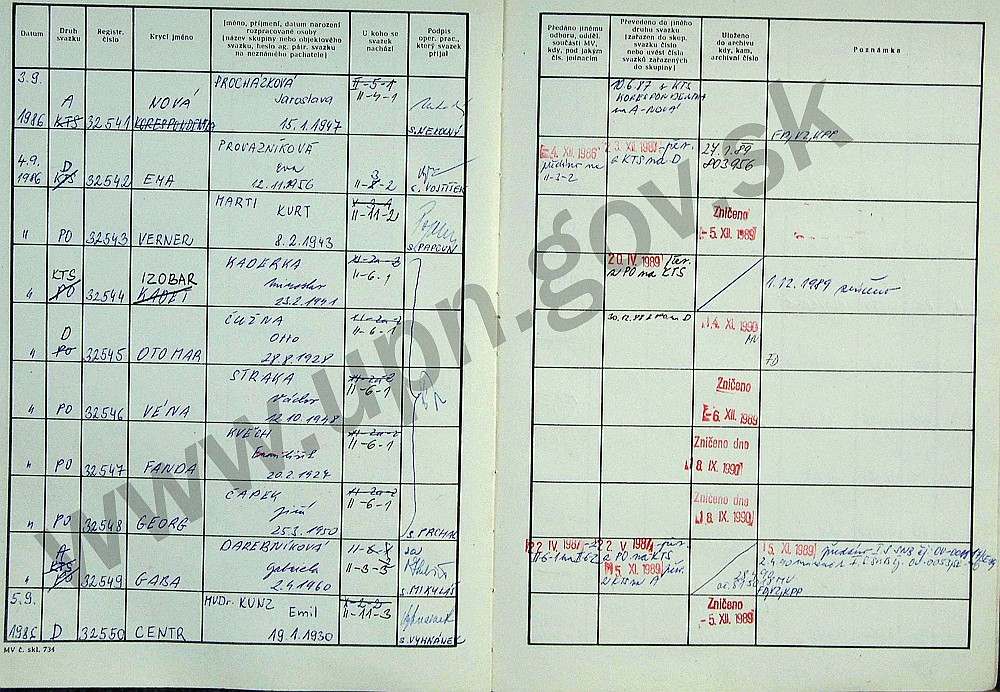 Datum
Druh svazku
Registr. číslo
Krycí jméno
Jméno, příjmení, datum narození rozpracované osoby
(název skupiny nebo objektového svazku, heslo ag. pátr. svazku na neznámého pachatele)
U koho se svazek nachází
Podpis oper. prac., který svazek přijal
Předáno jinému odboru, odděl. součásti MV, kdy, pod jakým čís. jednacím
Převedeno do jiného druhu svazku
(zařazen do skup. svazku číslo nebo uvést číslo svazků zařazených do skupiny)
Uloženo do archivu kdy, kam, archivní číslo
Poznámka
3.9. 1986
A
KTS
32541
NOVÁ
KORESPONDENTKA
PROCHÁZKOVÁ
Jaroslava
15.1.1947
II-5-1
II-4-1
10.6.87 z KTS
KORESPONDENTKA
na A-NOVÁ
FD, VZ, KPP
4.9. 1986
D
KTS
32542
EMA
PROVAZNÍKOVÁ
Eva
12.11.1956
4. XII. 1986
předáno na
II-3-2
23. XII. 1987
z KTS na D
27.1.89
803956
"
PO
32543
VERNER
MARTI
KURT
8.2.1943
II-11-2
S. PAPCUN
Zničeno
-5. XII. 1989
"
KTS
PO
32544
IZOBAR
KADET
KADERKA
Miroslav
23.2.1941
II-6-1
20. IV. 1989
z PO na KTS
1.12.1989
"
D
PO
32545
OTOMAR
ČUŽNA
Otto
28.8.1928
II-6-1
4. XI. 1990
"
PO
32546
VÉNA
STRAKA
Václav
12.10.1948
II-6-1
Zničeno
-6. XII. 1989
"
PO
32547
FANDA
KVĚCH
František
II-6-1
Zničeno dne
8. IX. 1990
"
PO
32548
GEORG
ČAPEK
Jiří
25.3.1950
II-6-1
Zničeno dne
8. IX. 1990
"
A
KTS
PO
32549
GABA
DAREBNÍKOVÁ
Gabriela
2.4.1960
II-3-3
S. MIKYLÁŠ
22. V. 1987
z PO na KTS
15. XI. 1989
z KTS na A
15. XI. 1989
5.9. 1986
D
32550
CENTR
MVDr. KUNZ
Emil
19.1.1930
II-11-3
S. VYHNÁNEK
Zničeno
-5. XII. 1989
MV č. skl. 734
www.upn.gov.sk